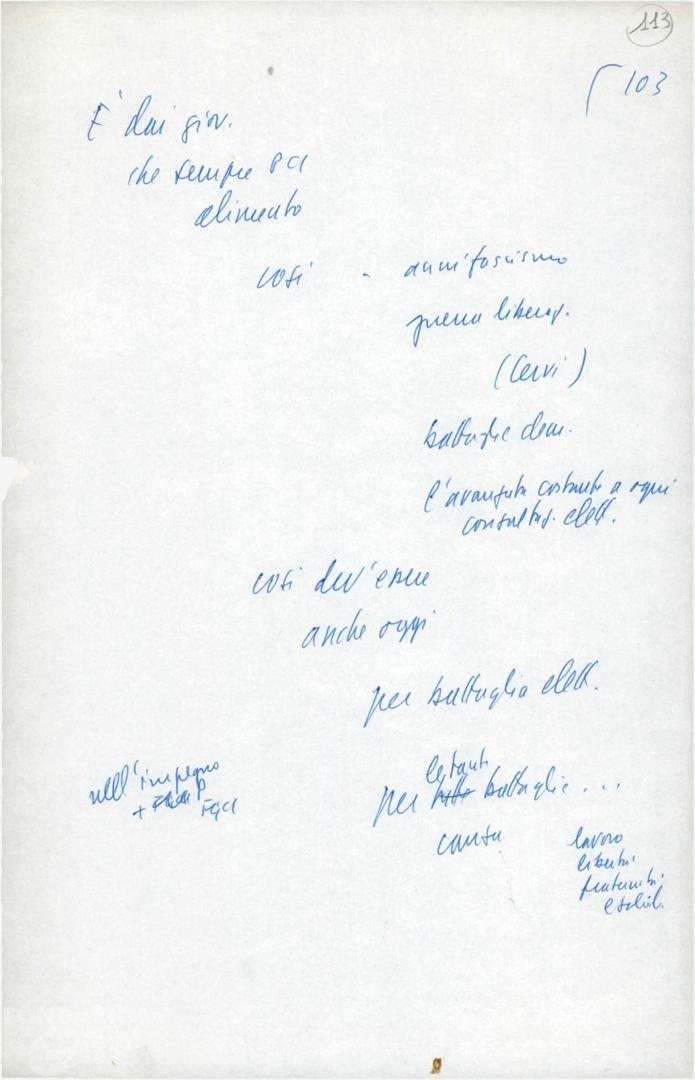 113
103
È dai giov.
che sempre PCI
alimento
così - antifascismo
guerra liberaz.
(Cervi)
battaglie dem.
l'avanzata costante a ogni
consultaz. elett.
così dev'essere
anche oggi
per battaglia elett.
le tanti
per battaglie...
nell'impegno
+ FGCI
causa
lavoro
libertà
fraternità
e solid.